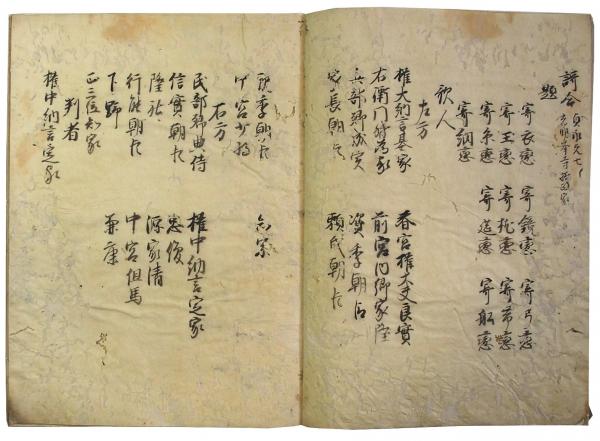 謌合 貞永元七
光明峯寺摂政家
題
寄衣戀 寄鏡戀 寄弓戀
寄玉戀 寄枕戀 寄帯戀
寄糸戀 寄筵戀 寄船戀
寄網戀
歌人
左方
権大納言基家 春宮権大夫良實
右衛門督為家 前宮内卿家隆
兵部卿成実 資季朝臣
家長朝臣 頼氏朝臣
親季朝臣 知宗
中宮少将
右方
民部卿典侍 権中納言定家
信實朝臣 忠俊
隆祐 源家清
行能朝臣 中宮但馬
下野 兼康
正三位知家
判者
権中納言定家